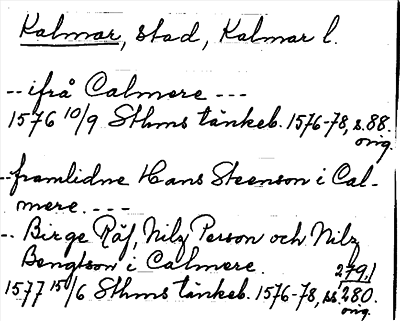 Kalmar, stad, Kalmar l.
-- ifrå Calmere ---
1576 10/9 Sthms tänkeb. 1576-78, s. 88.
orig.
-- framlidne Hans Steenson i Cal-
mere. ---
-- Birge Räf, Nilz Person och Nilz
Bengtson i Calmere.
279,1
1577 15/6 Sthms tänkeb. 1576-78, ss 280.
orig.